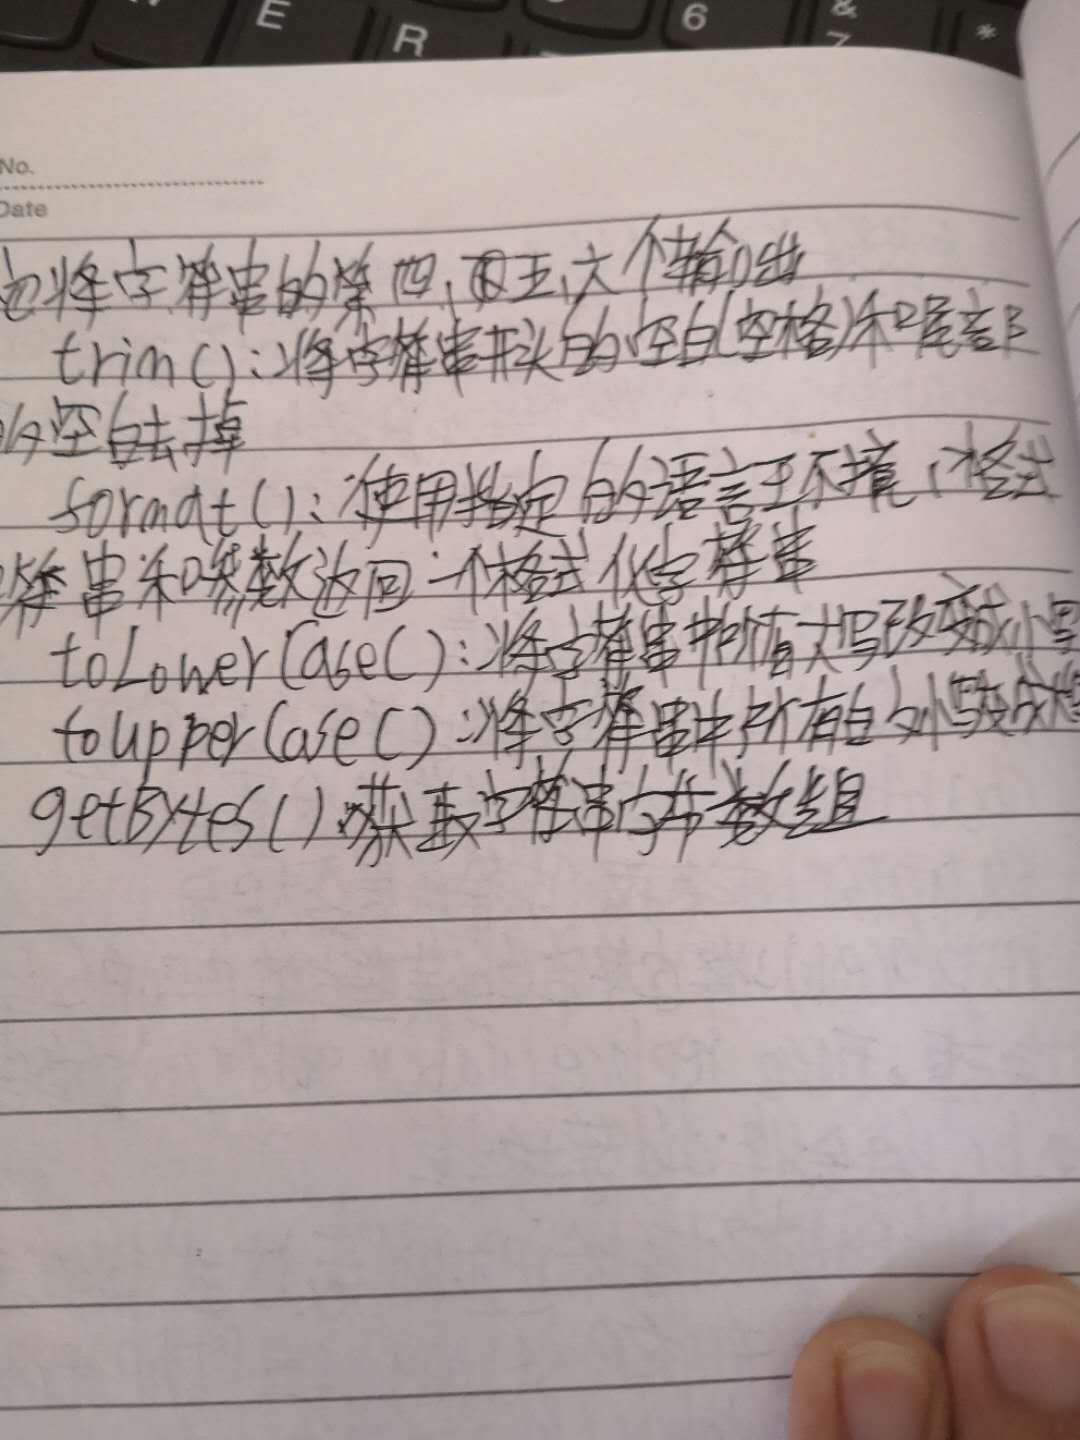 E
R
6
&
7
*
No.
Date
将字符串的第四、五、六个输出
trim():将字符串开头的空白(空格)和尾部
的空白去掉
format():使用指定的语言环境、格式
符串和参数返回一个格式化字符串
toLowerCase():将字符串中所有大写改变成小写
toUpperCase():将字符串中所有的小写变成大写
getBytes():获取字符串字节数组